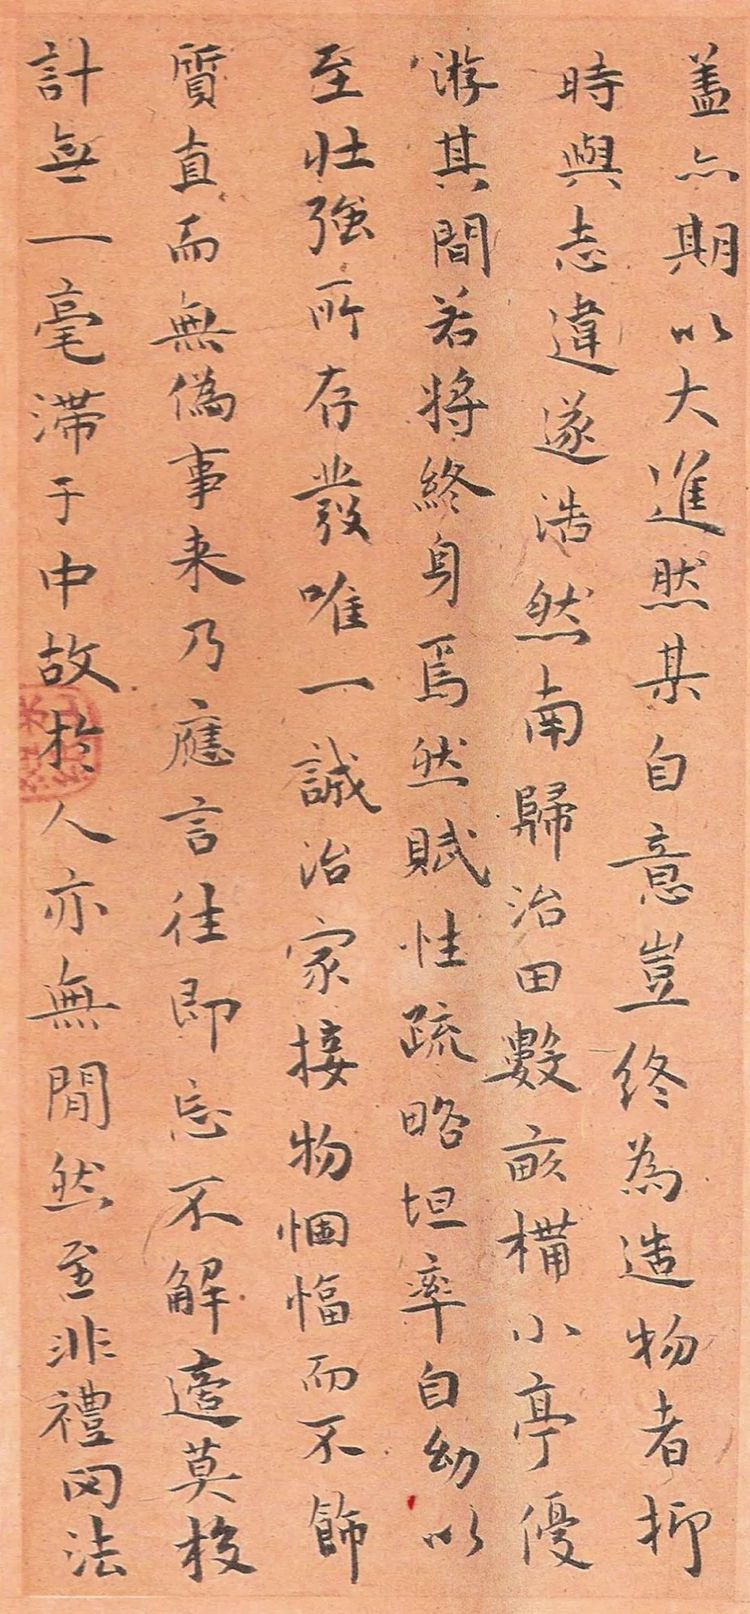 盖亦期以大進然某自意豈終為造物者抑
時與志違遂浩然南歸治田數畝構小亭優
游其間若將終身焉然賦性疏略坦率自幼以
至壯強所存發唯一誠治家接物悃愊而不飾
質直而無偽事来乃應言往即忘不解適莫校
計無一毫滯于中故於人亦無閒然至非禮罔法